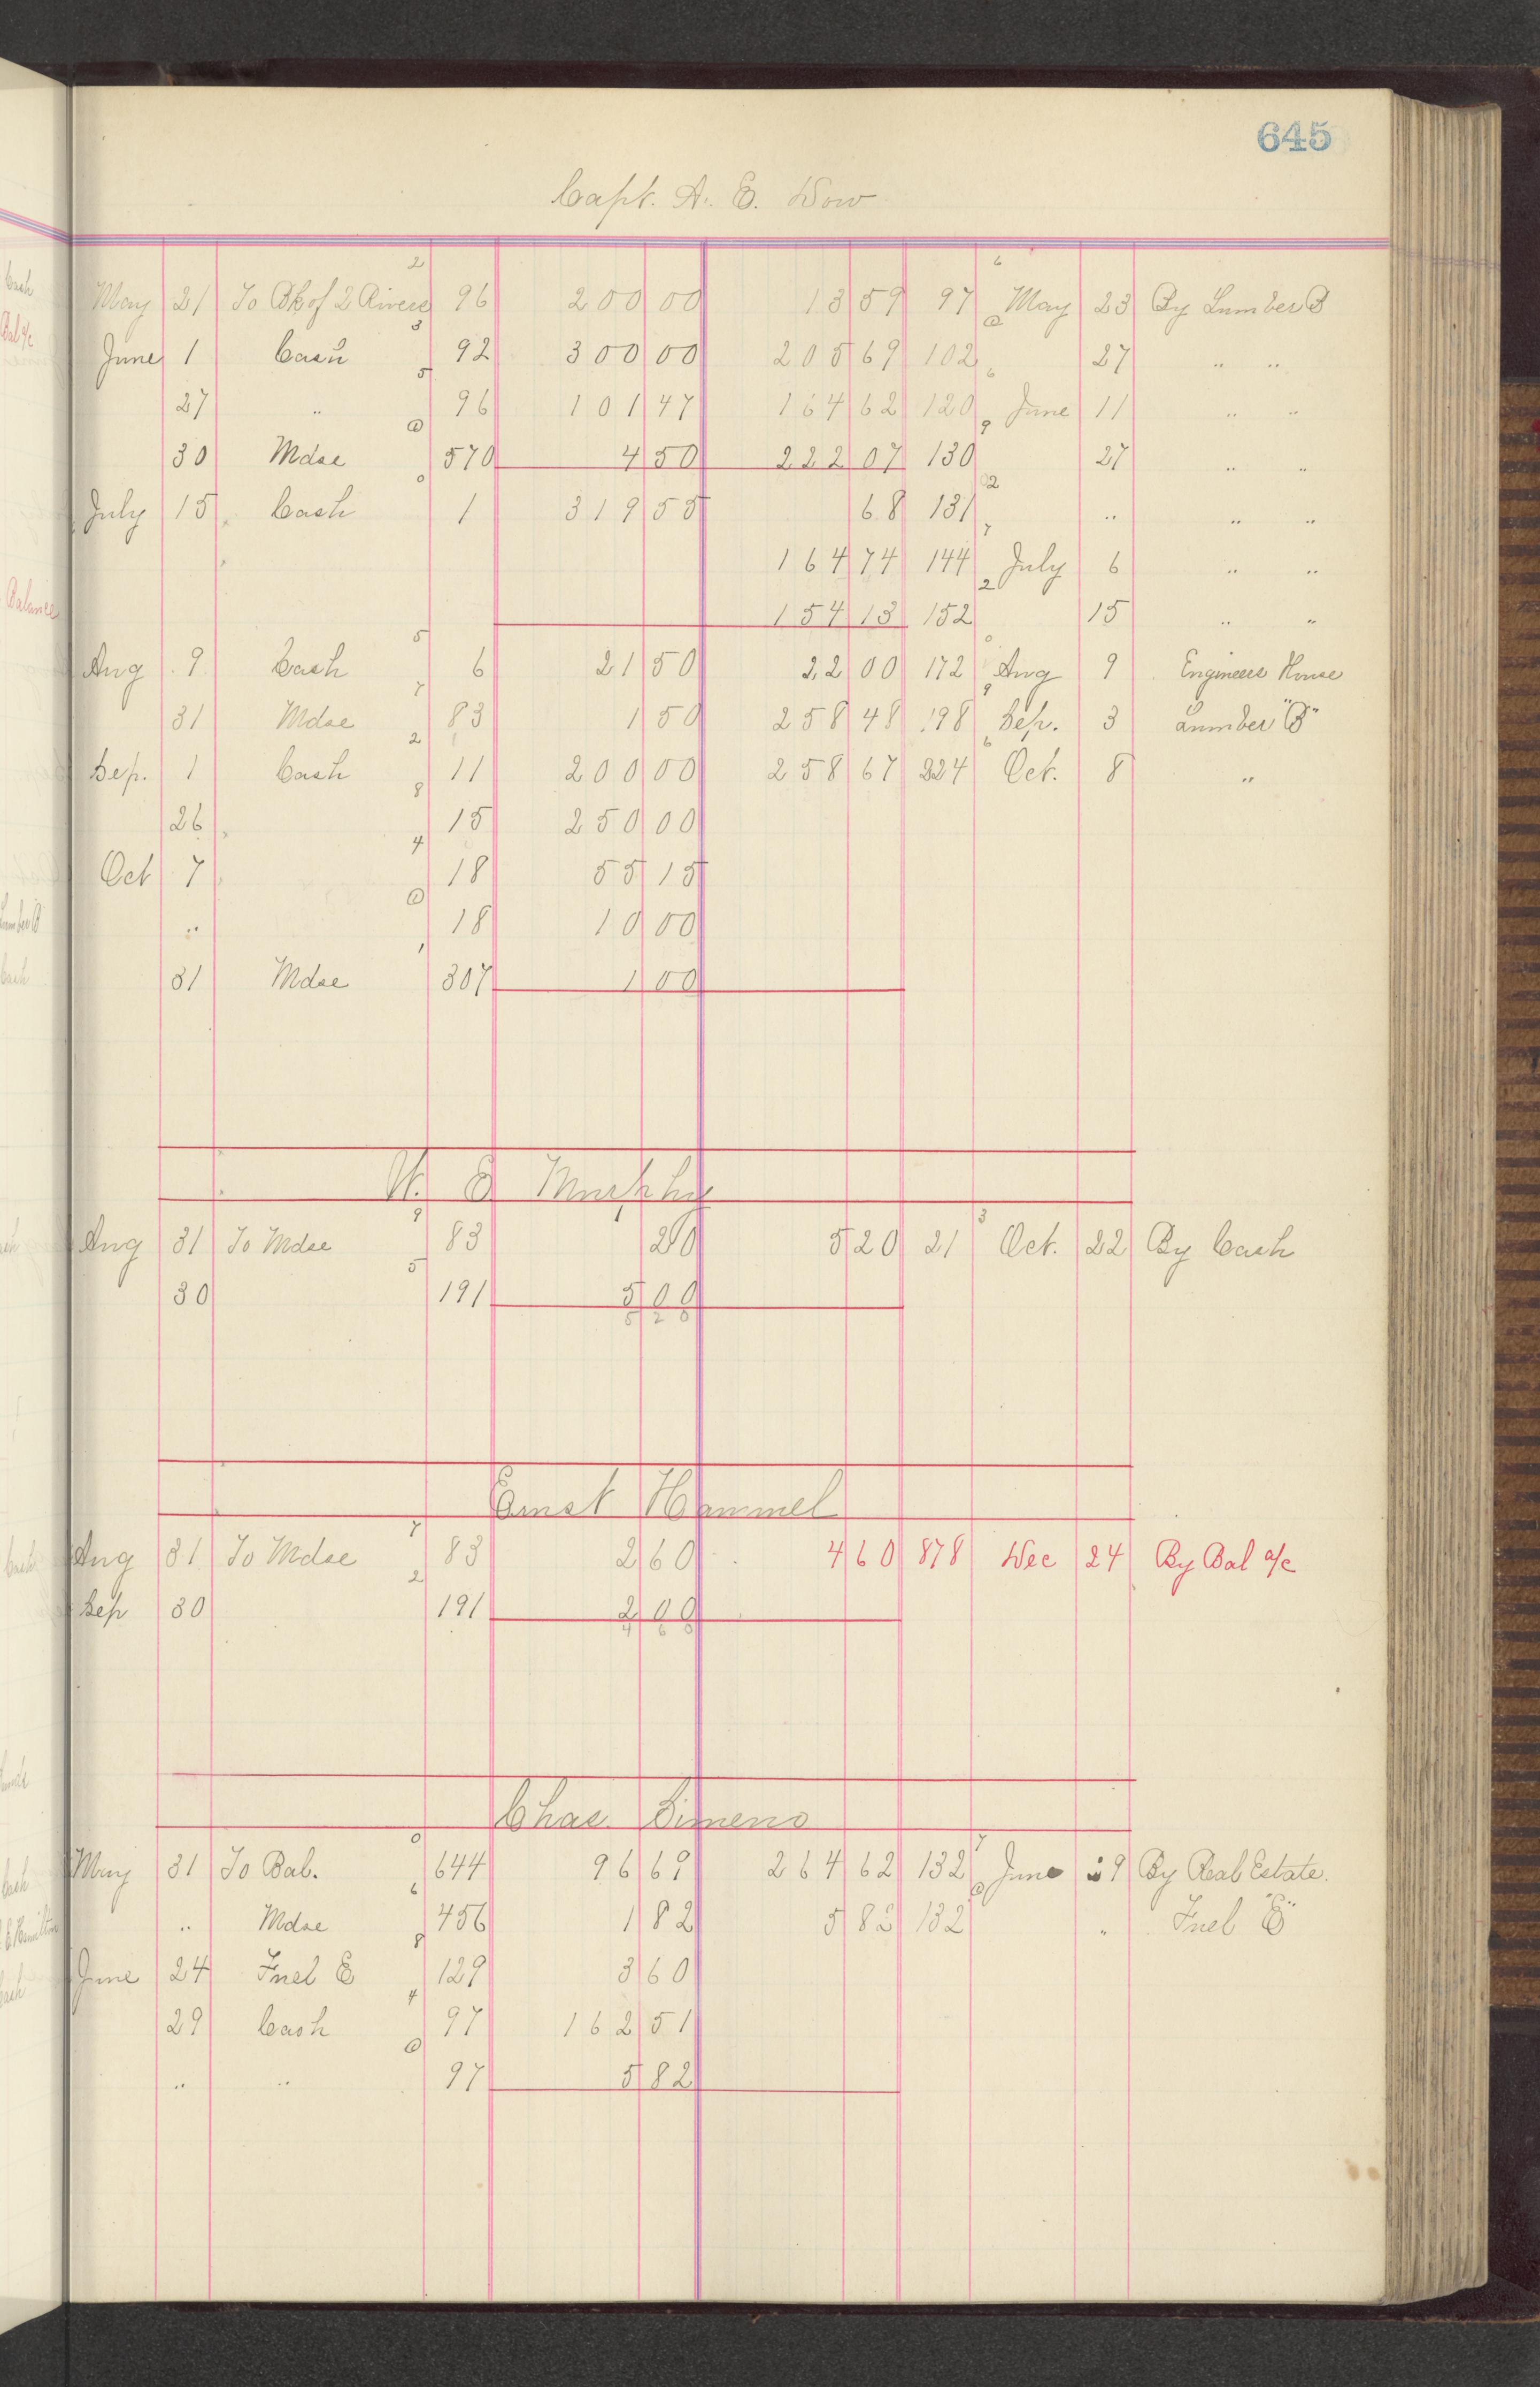 645
Capt. A. E. Dow
2 6
May 21 To Bk of 2 Rivers 96 200 00 13 59 97 May 23 By Lumber B
3 @
June 1 Cash 92 300 00 205 69 102 27 " "
5 6
27 " 96 101 47 164 62 120 June 11 " "
@ 9
30 Mdse 570 4 50 222 07 130 27 " "
0 2
July 15 Cash 1 319 55 68 131 " " "
7
164 74 144 July 6 " "
2
154 13 152 15 " "
5 0
Aug 9 Cash 6 21 50 22 00 172 Aug 9 Engineers House
7 9
31 Mdse 83 1 50 258 48 198 Sep. 3 Lumber "B"
2 6
Sep. 1 Cash 11 200 00 258 67 224 Oct. 8 "
8
26 15 250 00
4
Oct 7 18 55 15
@
" 18 10 00
1
31 Mdse 307 1 00
E Murphy
9 1 3
Aug 31 To Mdse 83 20 5 20 21 Oct. 22 By Cash
5
30 191 5 00
5 20
Ernst Hammel
7
Aug 31 To Mdse 83 2 60 4 60 878 Dec 24 By Bal a/c
2
Sep 30 191 2 00
4 60
Chas. Simeno
0 7
May 31 To Bal. 644 96 69 264 62 132 June 29 By Real Estate.
6 @
" Mdse 456 1 82 5 82 132 " Fuel "E"
8
June 24 Fuel E 129 3 60
4
29 Cash 97 162 51
@
" " 97 5 82